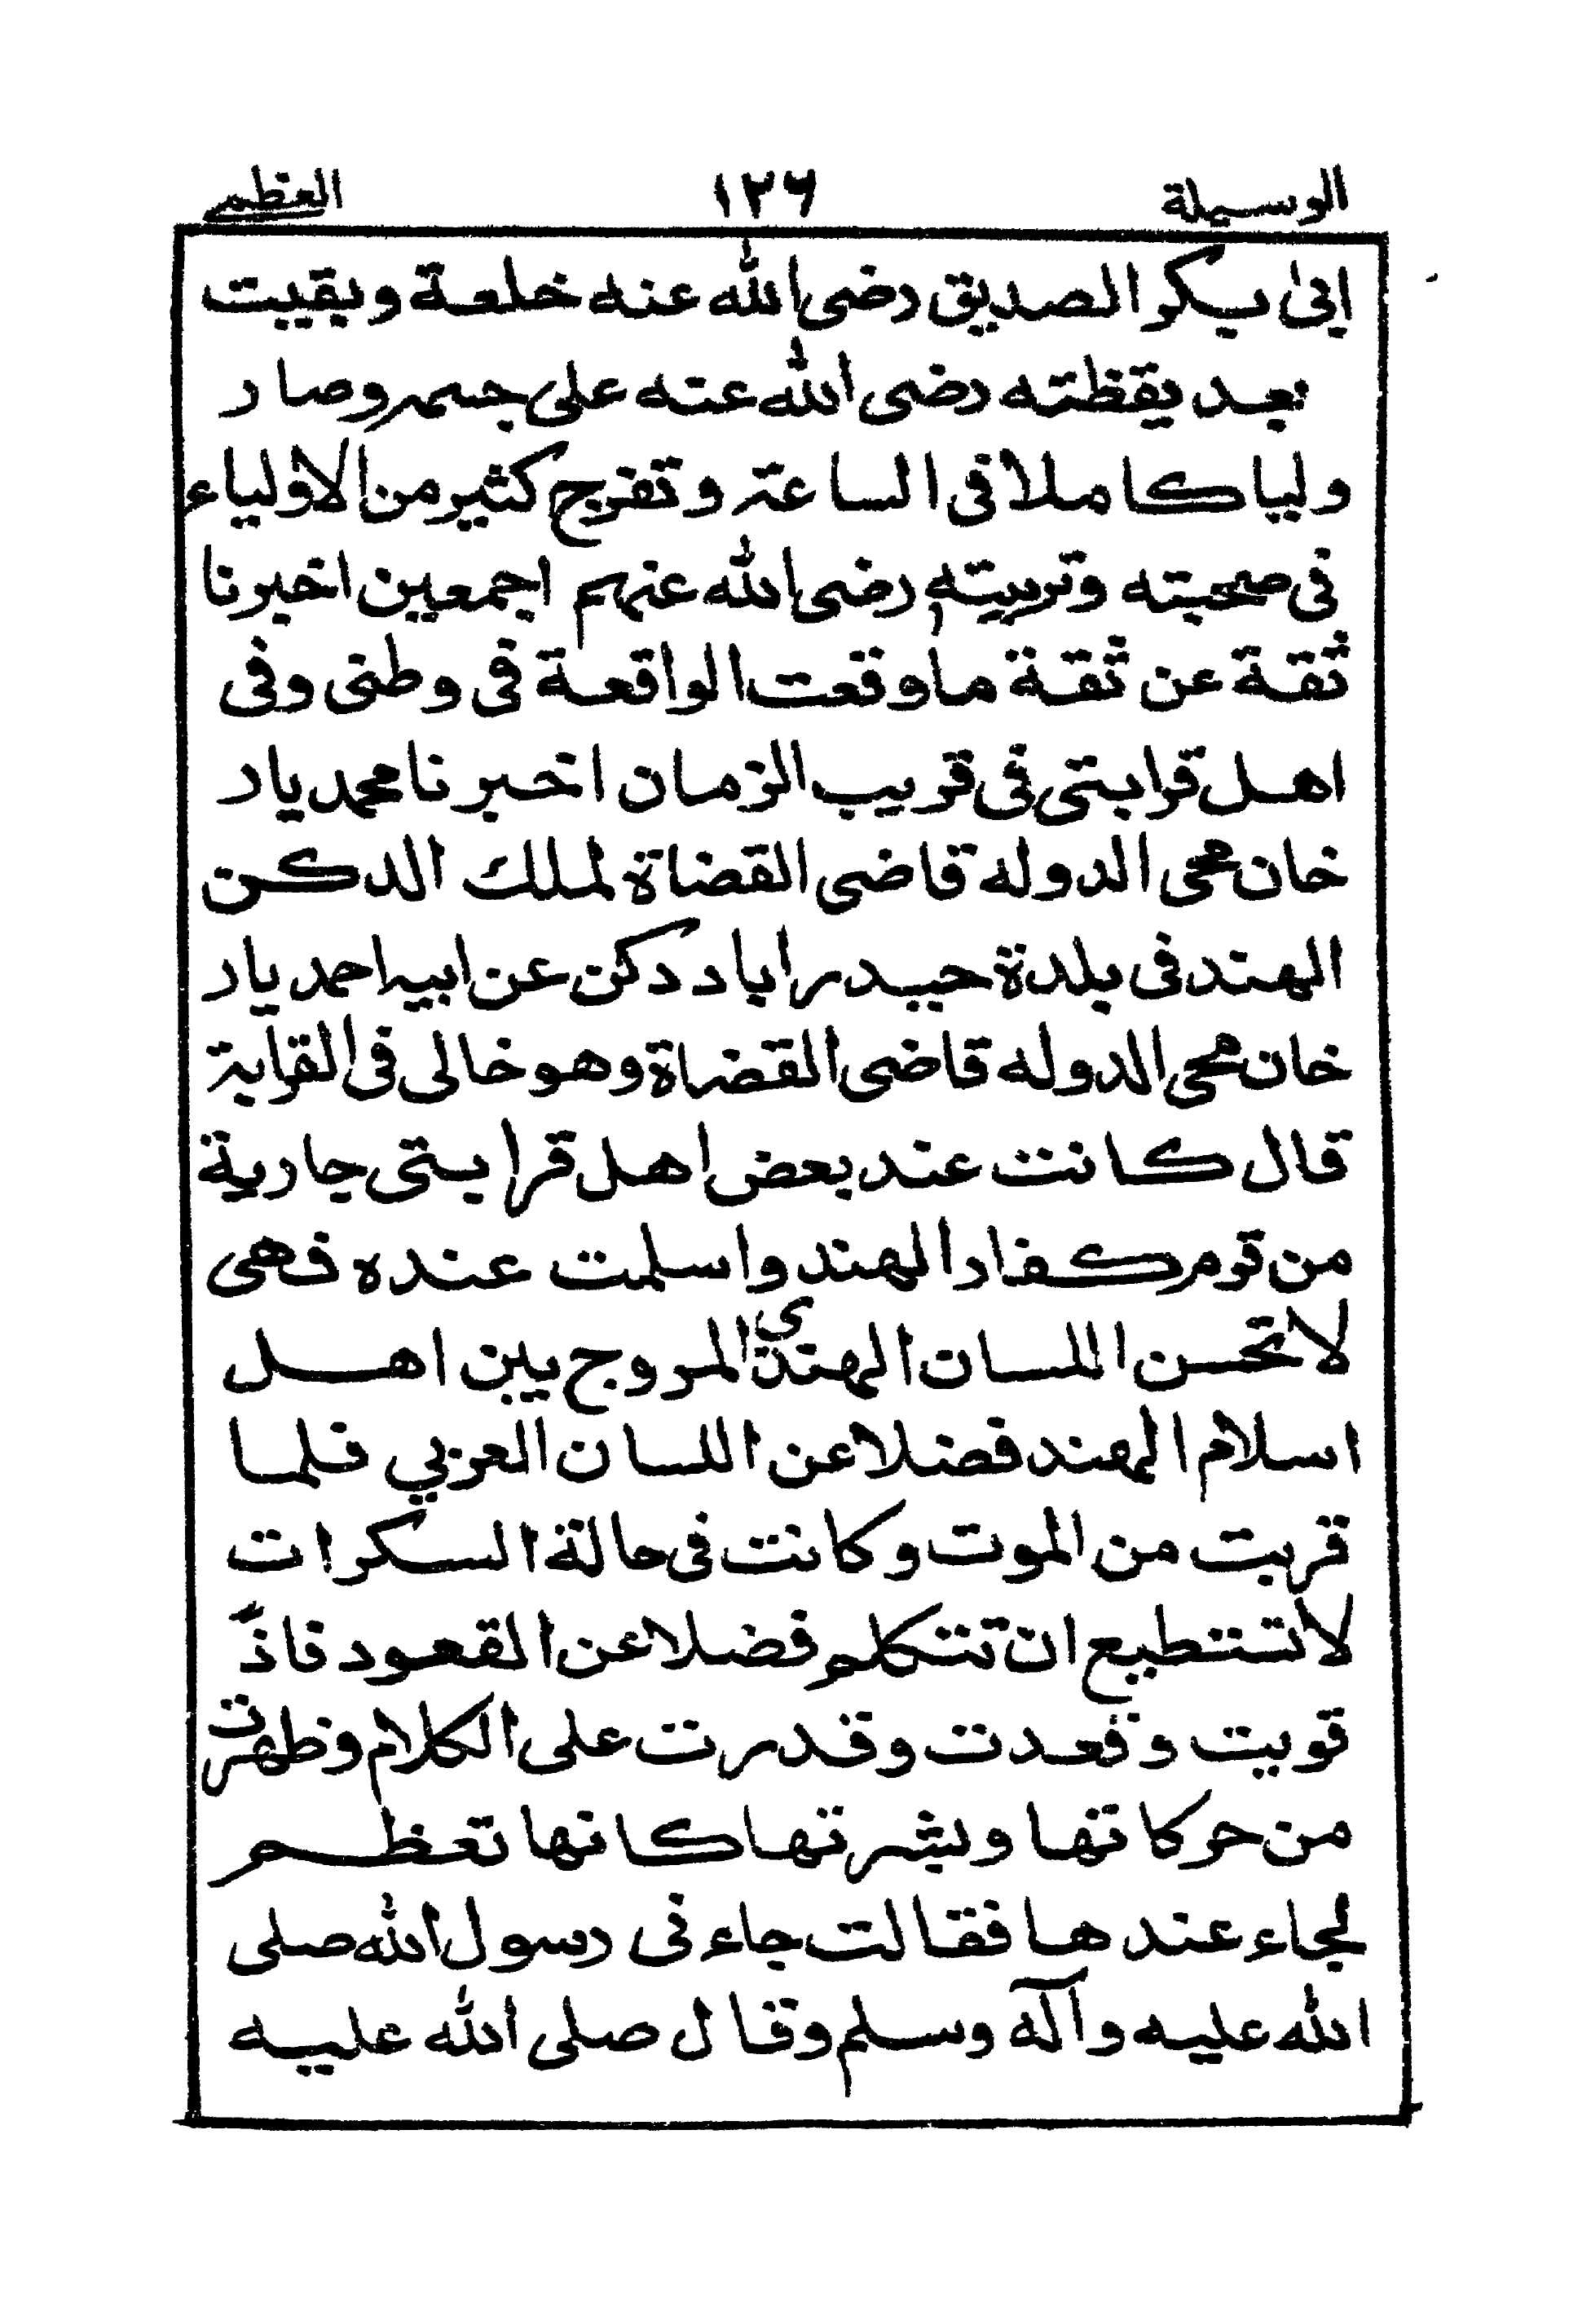 الوسيلة ١٢٦ العظمى
ابى بكر الصديق رضى الله عنه خلعة وبقيت
بعد يقظته رضى الله عنه على جسمه وصار
وليا كاملا فى الساعة وتفرج كثير من الاولياء
فى صحبته وتربيته رضى الله عنهم اجمعين اخبرنا
ثقة عن ثقة ما وقعت الواقعة فى وطنى وفى
اهل قرابتى فى قريب الزمان اخبرنا محمد يار
خان محى الدوله قاضى القضاة لملك الدكن
الهند فى بلدة حيدراباد دكن عن ابيه احمد يار
خان محى الدوله قاضى القضاة وهو خالى فى القرابة
قال كانت عند بعض اهل قرابتى جارية
من قوم كفار الهند واسلمت عنده فهى
لا تحسن اللسان الهندي المروج بين اهل
اسلام الهند فضلا عن اللسان العربي فلما
قربت من الموت وكانت فى حالة السكرات
لا تستطيع ان تتكلم فضلا عن القعود فاذً
قويت وقعدت وقدرت على الكلام وظهرت
من حركاتها وبشرتها كانها تعظم
لجاء عندها فقالت جاء نى رسول الله صلى
الله عليه وآله وسلم وقال صلى الله عليه